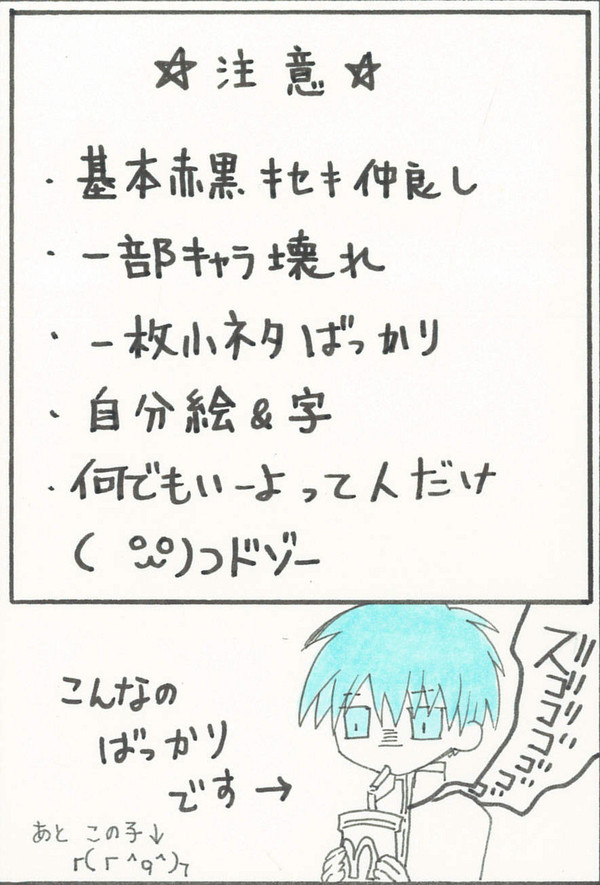 ☆注意☆
・基本赤黒 キセキ仲良し
・一部キャラ壊れ
・一枚小ネタばっかり
・自分絵&字
・何でもいーよって人だけ
( ºωº)つドゾー
こんなの
ばっかり
です→
ズゴゴゴゴゴ
あと この子↓
┌(┌ ^o^)┐